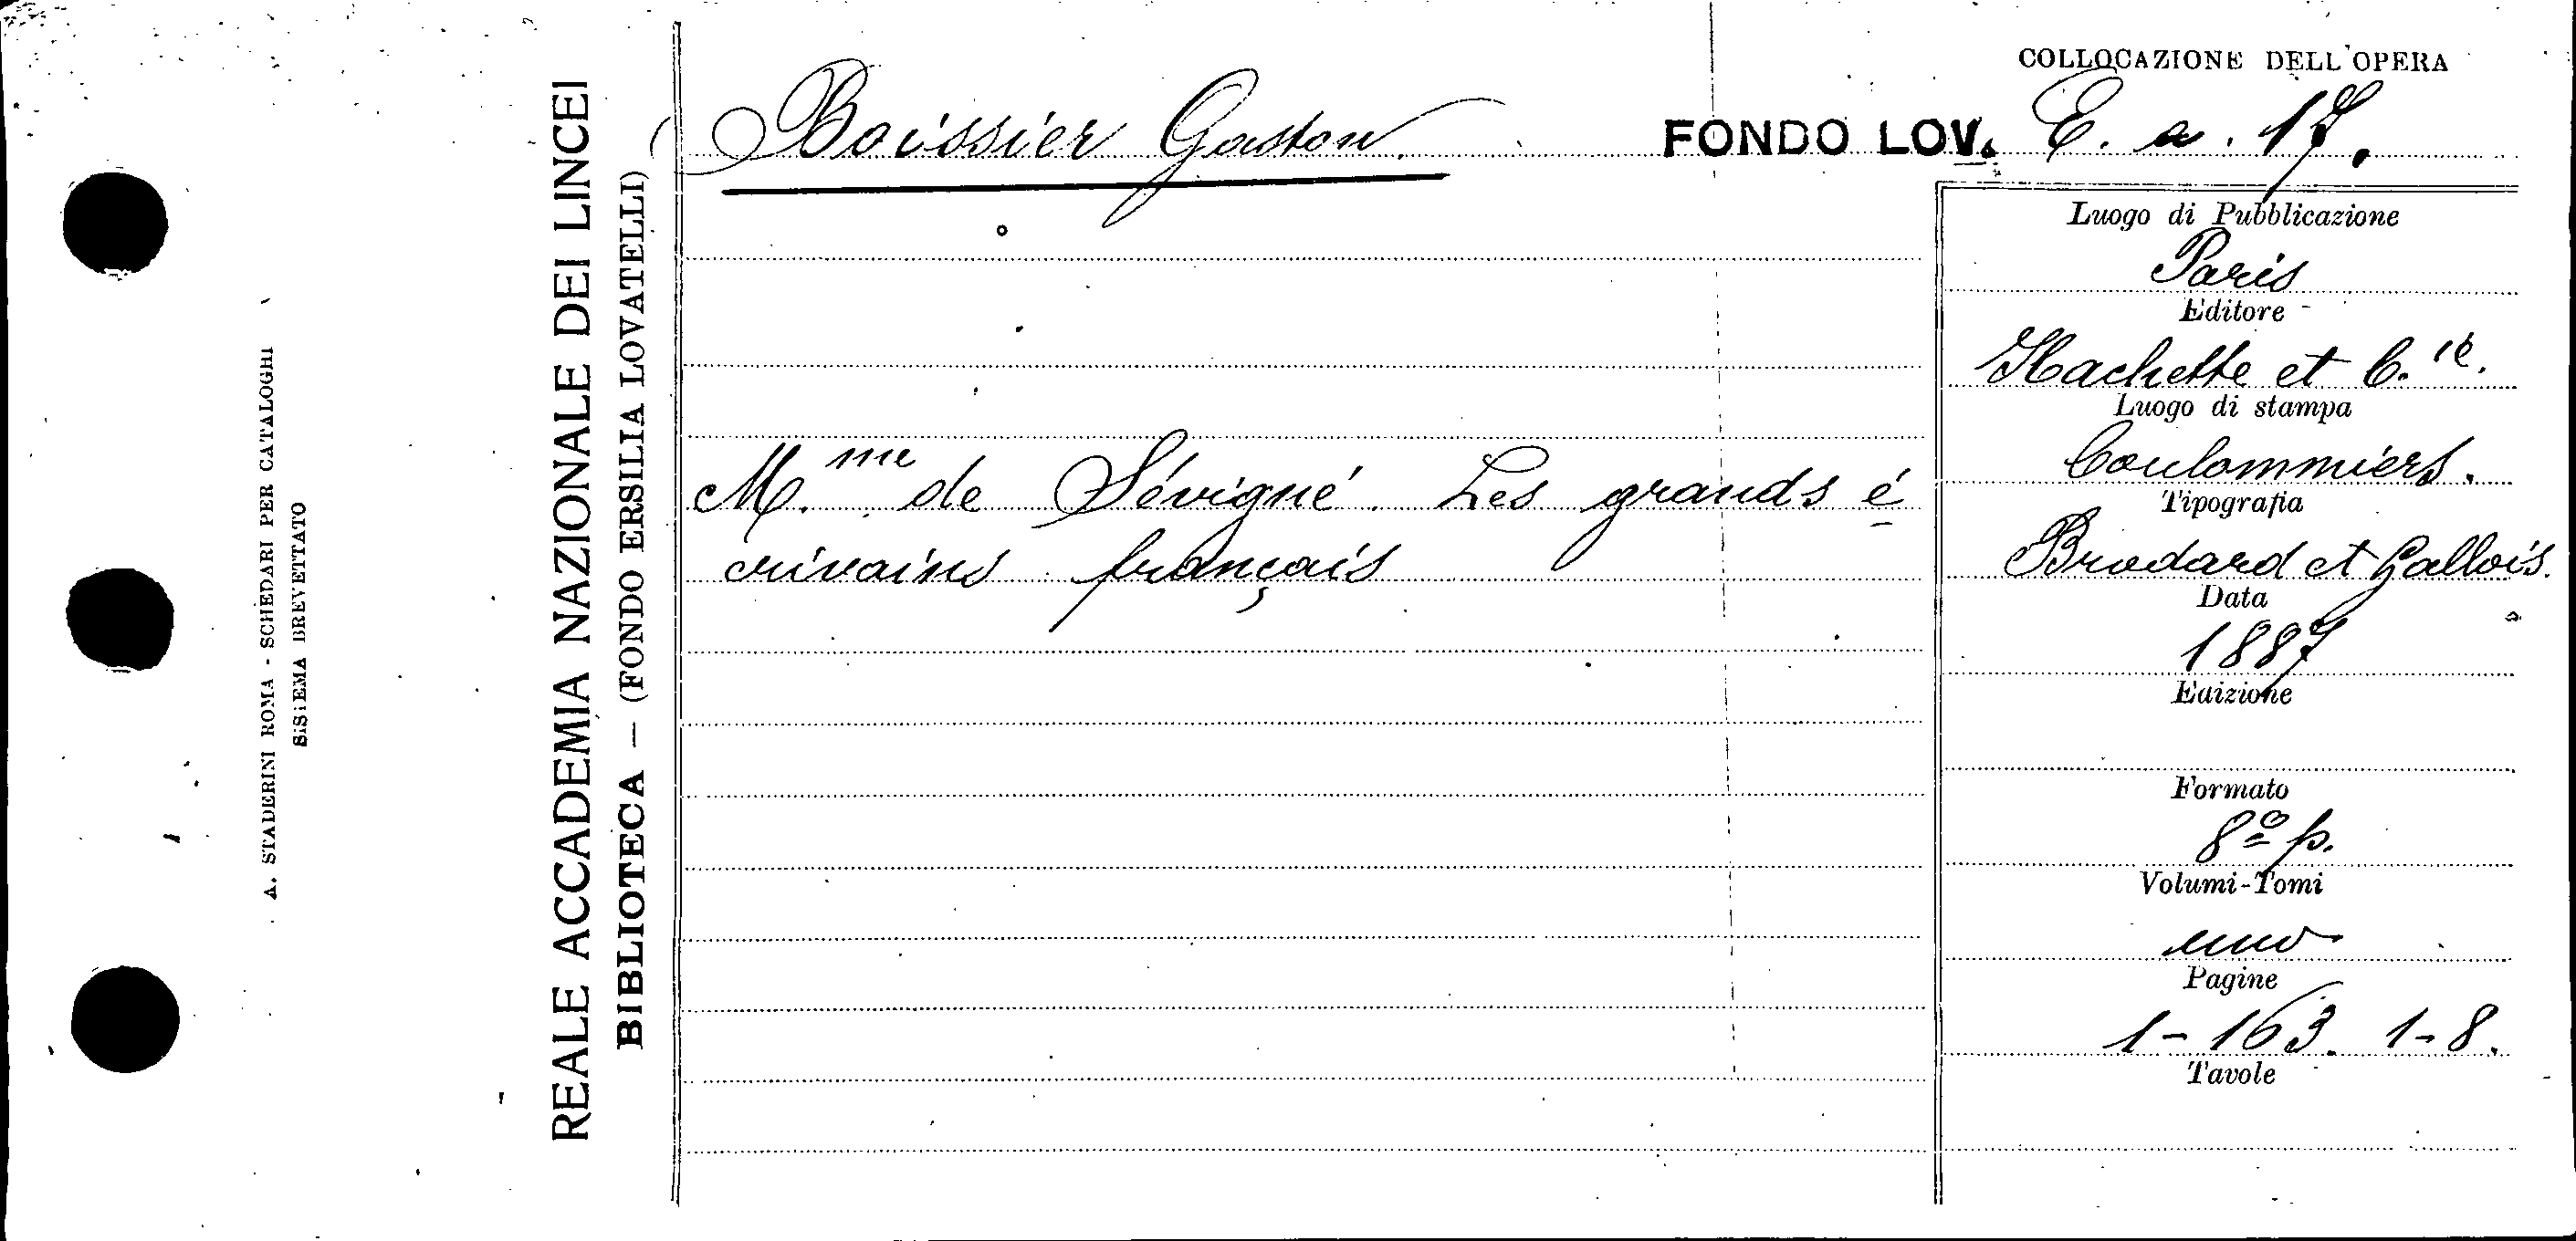 A. STADERINI ROMA - SCHEDARI PER CATALOGHI
SISTEMA BREVETTATO
REALE ACCADEMIA NAZIONALE DEI LINCEI
BIBLIOTECA — (FONDO ERSILIA LOVATELLI)
COLLOCAZIONE DELL'OPERA
Boissier Gaston. FONDO LOV. E. a. 17.
M.me de Sévigné. Les grands é
crivains français
Luogo di Pubblicazione
Paris
Editore
Hachette et C.ie.
Luogo di stampa
Coulommiers.
Tipografia
Brodard et Gallois.
Data
1887
Edizione
Formato
8º p.
Volumi-Tomi
uno
Pagine
1-163. 1-8.
Tavole